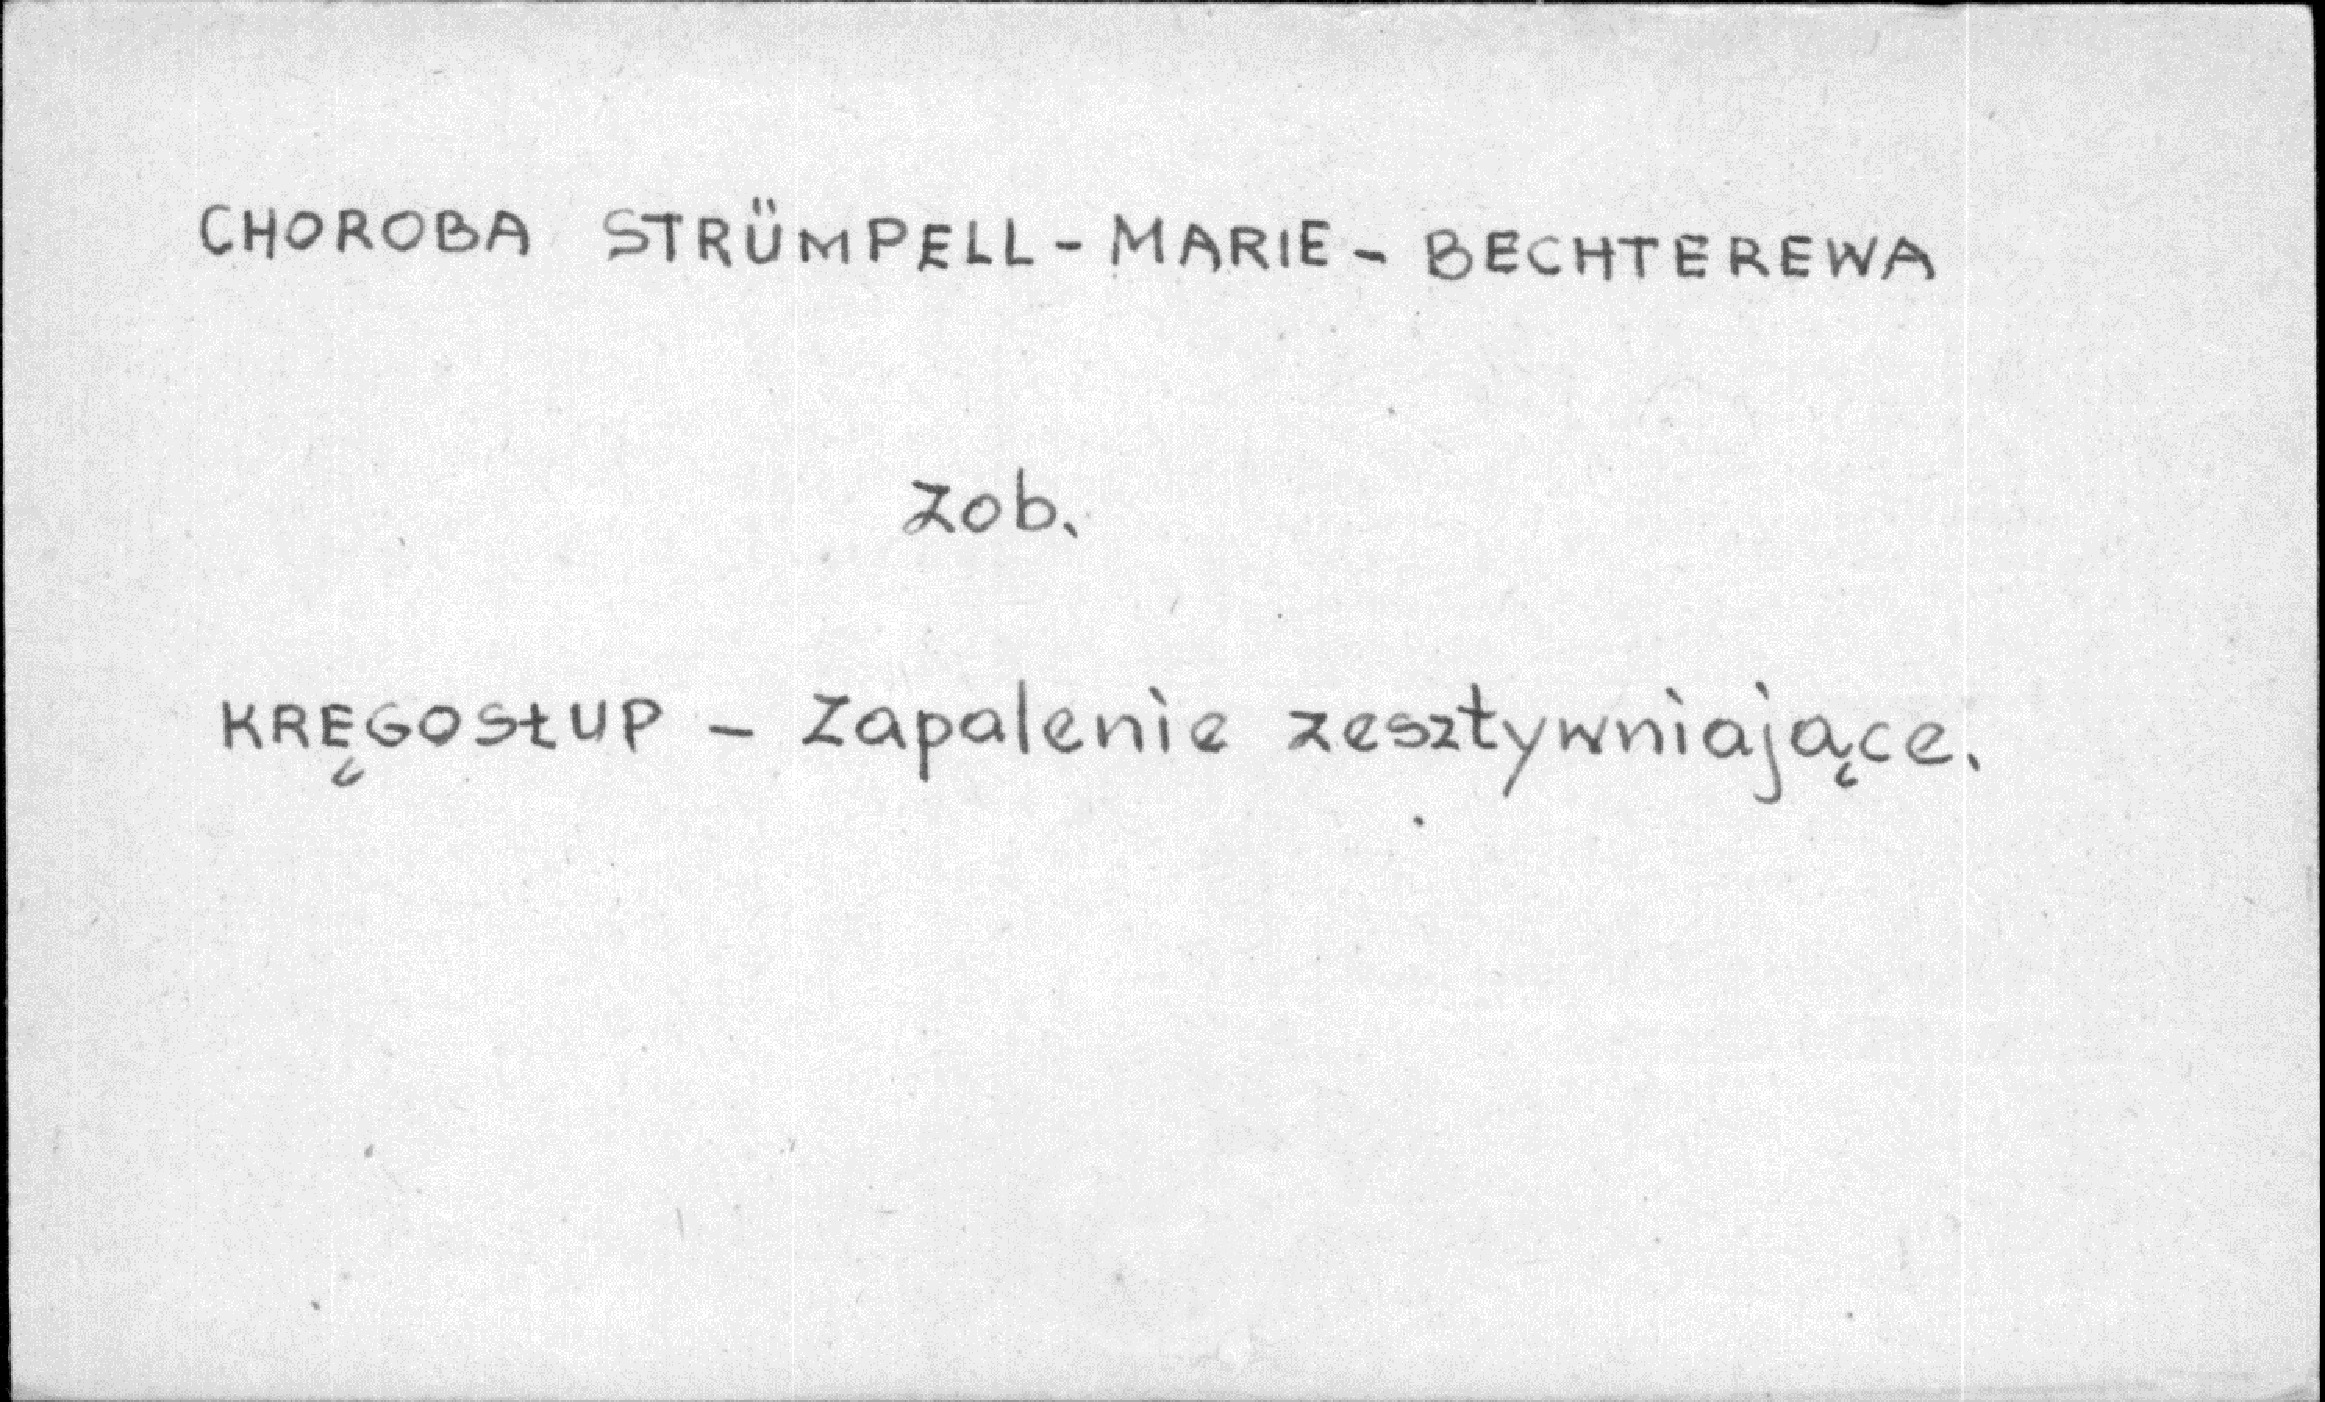 CHOROBA STRÜMPELL - MARIE - BECHTEREWA
zob.
KRĘGOSŁUP - Zapalenie zesztywniające.